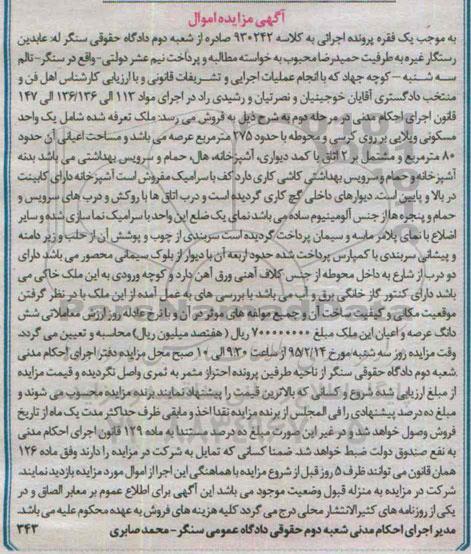 آگهی مزایده اموال
به موجب یک فقره پرونده اجرائی به کلاسه ۹۳۰۲۴۲ صادره از شعبه دوم دادگاه حقوقی سنگر له: عابدین
رستگار غیره به طرفیت حمیدرضا محبوب به خواسته مطالبه و پرداخت نیم عشر دولتی- واقع در سنگر- تالم
سه شنبه – کوچه جهاد که با انجام عملیات اجرایی و تشریفات قانونی و با ارزیابی کارشناس اهل فن و
منتخب دادگستری آقایان خوجینیان و نصرتیان و رشیدی راد در اجرای مواد ۱۱۳ الی ۱۳۶/۱۳۶ الی ۱۴۷
قانون اجرای احکام مدنی در مرحله دوم به شرح ذیل به فروش می رسد: ملک تعرفه شده شامل یک واحد
مسکونی ویلایی بر روی کرسی و محوطه با حدود ۲۷۵ مترمربع عرصه می باشد و مساحت اعیانی آن حدود
۸۰ مترمربع و مشتمل بر ۲ اتاق با کمد دیواری، آشپزخانه، هال، حمام و سرویس بهداشتی می باشد بدنه
آشپزخانه و حمام و سرویس بهداشتی کاشی کاری دارد کف با سرامیک مفروش است آشپزخانه دارای کابینت
در بالا و پایین است. دیوارهای داخلی گچ کاری گردیده است و درب اتاق ها با روکش و درب های سرویس و
حمام و پنجره ها از جنس آلومینیوم ساده می باشد نمای یک ضلع این واحد با سرامیک نما سازی شده و سایر
اضلاع با نمای پلاستر ماسه و سیمان پرداخت گردیده است سربندی از چوب و پوشش آن از حلب و زیر دامنه
و پیشانی سربندی با لمبه پرداخت شده حدود اربعه آن با دیوار از بلوک سیمانی محصور می باشد دارای
دو درب از شارع به داخل محوطه از جنس کلاف آهنی ورق آهن دارد و کوچه ورودی به این ملک خاکی می
باشد دارای کنتور گاز خانگی برق و آب می باشد با بررسی های به عمل آمده از این ملک با در نظر گرفتن
موقعیت مکانی و کیفیت ساخت آن و جمیع مولفه های موثر در آن و با نرخ عادله روز ارزش معاملاتی شش
دانگ عرصه و اعیان این ملک مبلغ ۷۰۰۰۰۰۰۰۰ ریال ( هفتصد میلیون ریال) محاسبه و تعیین می گردد.
وقت مزایده روز سه شنبه مورخ ۹۵/۲/۱۴ از ساعت ۹:۳۰ الی ۱۰ صبح محل مزایده دفتر اجرای احکام مدنی
شعبه دوم دادگاه حقوقی سنگر از ناحیه طرفین پرونده احتراز مثمر به ثمری واصل نگردیده و قیمت مزایده
از مبلغ ارزیابی شده شروع و کسانی که بالاترین قیمت را پیشنهاد نمایند برنده مزایده محسوب می شوند و
مبلغ ده درصد پیشنهادی را فی المجلس از برنده مزایده نقدا اخذ و مابقی ظرف حداکثر مدت یک ماه از تاریخ
فروش وصول خواهد شد و در غیر این صورت سپرده ده درصد مستندا به ماده ۱۲۹ قانون اجرای احکام مدنی
به نفع صندوق دولت ضبط خواهد شد. ضمنا کسانی که تمایل به شرکت در مزایده را دارند وفق ماده ۱۲۶
همان قانون می توانند ظرف ۵ روز قبل از شروع مزایده با هماهنگی این اجرا از اموال مورد مزایده بازدید نمایند.
شرکت در مزایده به منزله قبول وضعیت موجود می باشد این آگهی برای اطلاع عموم بر معابر الصاق و در
یکی از روزنامه های کثیرالانتشار محلی درج می گردد کلیه هزینه های فروش به عهده محکوم علیه می باشد.
مدیر اجرای احکام مدنی شعبه دوم حقوقی دادگاه عمومی سنگر- محمد صابری ۳۴۳